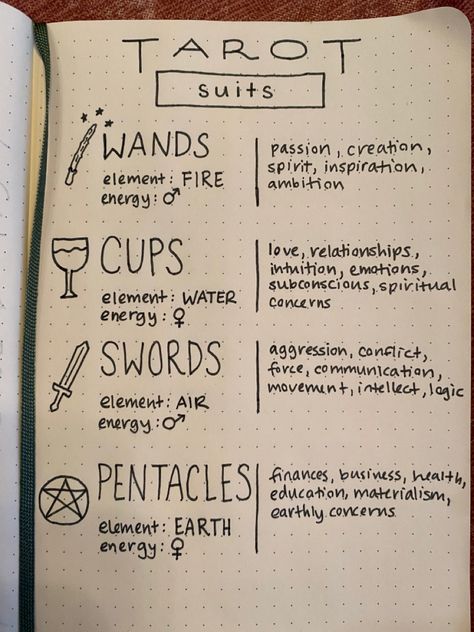 TAROT
suits
WANDS
element: FIRE
energy: ♂
passion, creation,
spirit, inspiration,
ambition
CUPS
element: WATER
energy: ♀
love, relationships,
intuition, emotions,
subconscious, spiritual
concerns
SWORDS
element: AIR
energy: ♂
aggression, conflict,
force, communication,
movement, intellect, logic
PENTACLES
element: EARTH
energy: ♀
finances, business, health,
education, materialism,
earthly concerns